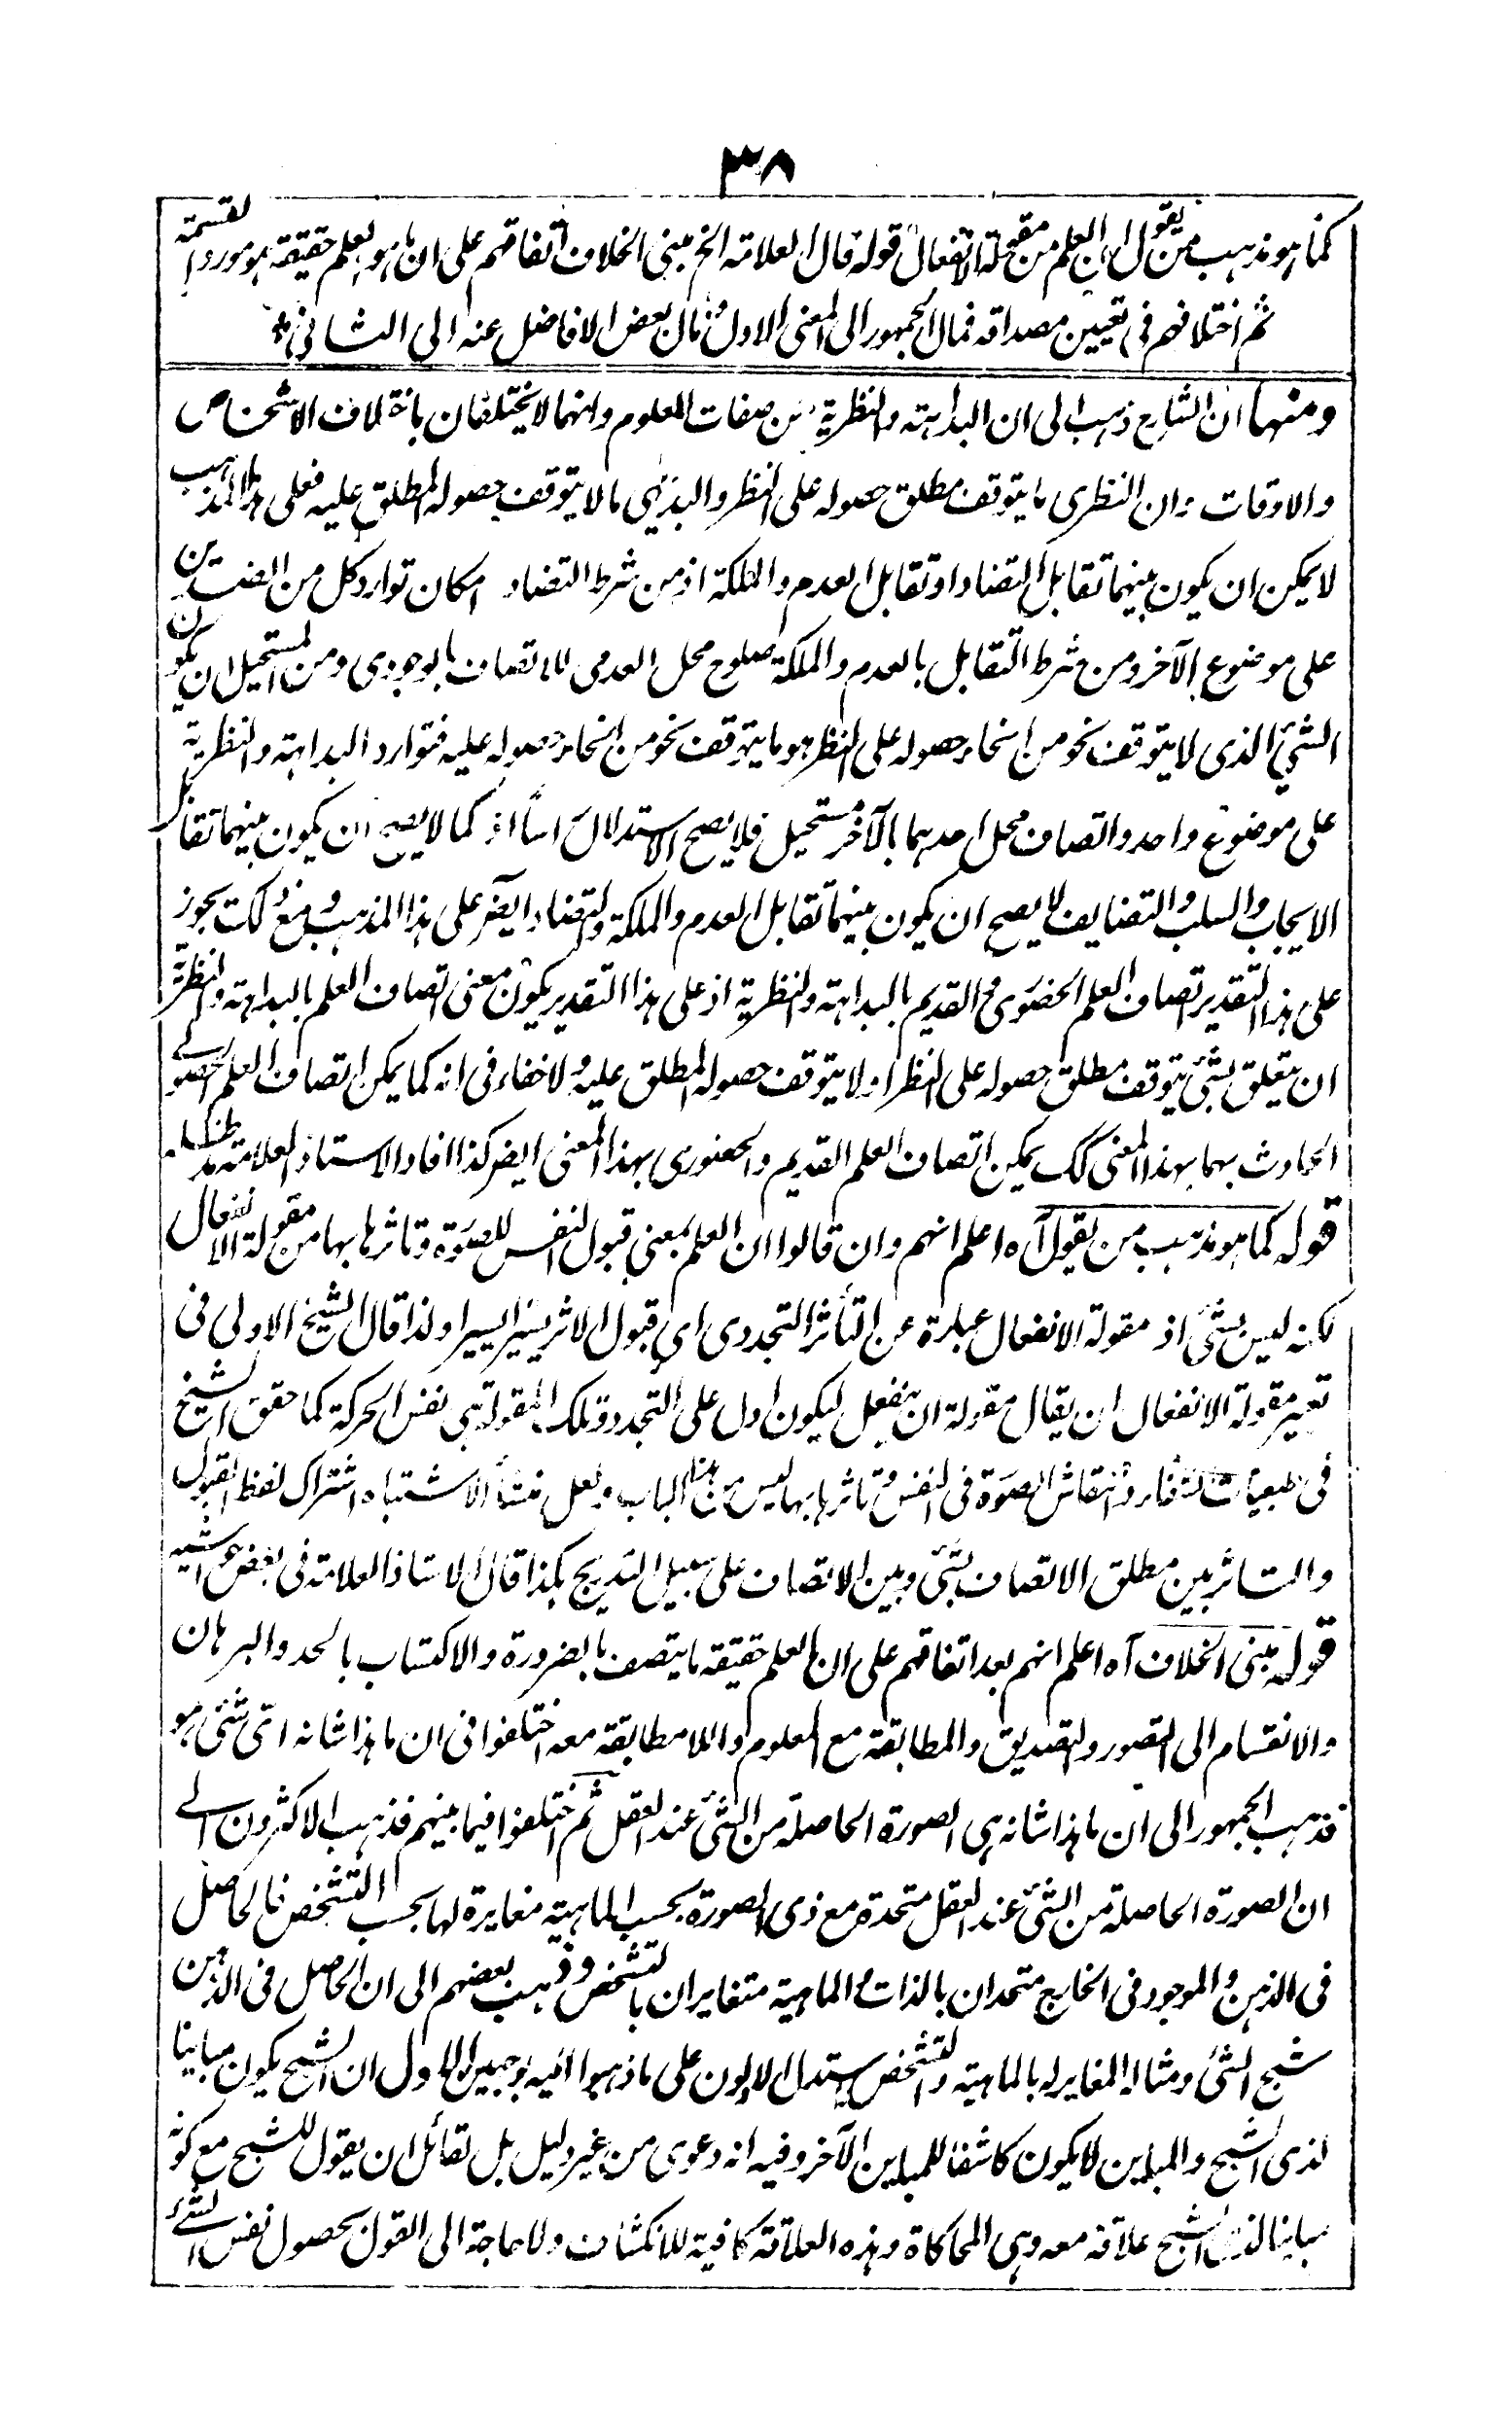 ٣٨
كما هو مذهب من يقول ان العلم من مقولة الانفعال قوله قال العلامة الخ مبنى الخلاف اتفاقهم على ان ما هو العلم حقيقة هو مورد القسمة
ثم اختلافهم فى تعيين مصداقه فمال الجمهور الى المعنى الاول ومال بعض الافاضل عنه الى الثانى
ومنها ان الشارح ذهب الى ان البداهة والنظرية من صفات المعلوم وانهما لا يختلفان باختلاف الاشخاص
والاوقات وان النظرى ما يتوقف مطلق حصوله على النظر والبديهى ما لا يتوقف حصوله المطلق عليه فعلى هذا المذهب
لا يمكن ان يكون بينهما تقابل التضاد او تقابل العدم والملكة اذ من شرط التضاد امكان توارد كل من الضدين
على موضوع الآخر ومن شرط التقابل بالعدم والملكة صلوح محل العدمى للاتصاف بالوجودى ومن المستحيل ان يكون
الشئ الذى لا يتوقف نحو من انحاء حصوله على النظر هو ما يتوقف نحو من انحاء حصوله عليه فتوارد البداهة والنظرية
على موضوع واحد واتصاف محل احدهما بالآخر مستحيل فلا يصح الاستدلال اساً اذ كما لا يصح ان يكون بينهما تقابل
الايجاب والسلب والتضايف لا يصح ان يكون بينهما تقابل العدم والملكة والتضاد ايضر على هذا المذهب ومنع ذلكت يجوز
على هذا التقدير اتصاف العلم الحضورى والقديم بالبداهة والنظرية اذ على هذا التقدير يكون معنى اتصاف العلم بالبداهة والنظرية
ان يتعلق بشئ يتوقف مطلق حصوله على النظر او لا يتوقف حصوله المطلق عليه ولا خفاء فى انه كما يمكن اتصاف العلم الحصولے
الحادث بهما بهذا المعنى كك يمكن اتصاف العلم القديم والحضورى بهذا المعنى ايضر كذا افاد الاستاذ العلامة مد ظله
قوله كما هو مذهب من يقول آه اعلم انهم وان قالوا ان العلم بمعنى قبول النفس للصورة وتاثرها بها من مقولة الانفعال
لكنه ليس بشئ اذ مقولة الانفعال عبارة عن التأثر التجددى اى قبول الاثر يسيرا يسيرا ولذا قال الشيخ الاولى فى
تعبير مقولة الانفعال ان يقال مقولة ان ينفعل ليكون ادل على التجدد وتلك المقولة هى نفس الحركة كما حقق الشيخ
فى طبعيات الشفاء وانتقاش الصورة فى النفس وتاثرها بها ليس من هذا الباب ولعل منشأ الاشتباه اشتراك لفظ القبول
والتاثر بين مطلق الاتصاف بشئ وبين الاتصاف على سبيل التدريج هكذا قال الاستاذ العلامة فى بعض حواشيه
قوله مبنى الخلاف آه اعلم انهم بعد اتفاقهم على ان العلم حقيقة ما يتصف بالضرورة والاكتساب بالحد والبرهان
والانقسام الى التصور والتصديق والمطابقة مع المعلوم واللامطابقة معه اختلفوا فى ان ما هذا شانه اى شئ هو
فذهب الجمهور الى ان ما هذا شانه هى الصورة الحاصلة من الشئ عند العقل ثم اختلفوا فيما بينهم فذهب الاكثرون الے
ان الصورة الحاصلة من الشئ عند العقل متحدة مع ذى الصورة بحسب الماهية مغايرة لها بحسب التشخص فالحاصل
فى الذهن والموجود فى الخارج متحدان بالذات والماهية متغايران بالتشخص وذهب بعضهم الى ان الحاصل فى الذهن
شبح الشئ ومثاله المغاير له بالماهية والتشخص استدل الاولون على ما ذهبوا اليه بوجهين الاول ان الشبح يكون مباينا
لذى الشبح والمباين لا يكون كاشفا للمباين الآخر وفيه انه دعوى من غير دليل بل لقائل ان يقول للشبح مع كونه
مباينا لذى الشبح علاقة معه وهى المحاكاة وهذه العلاقة كافية للانكشاف ولا حاجة الى القول بحصول نفس الشئ